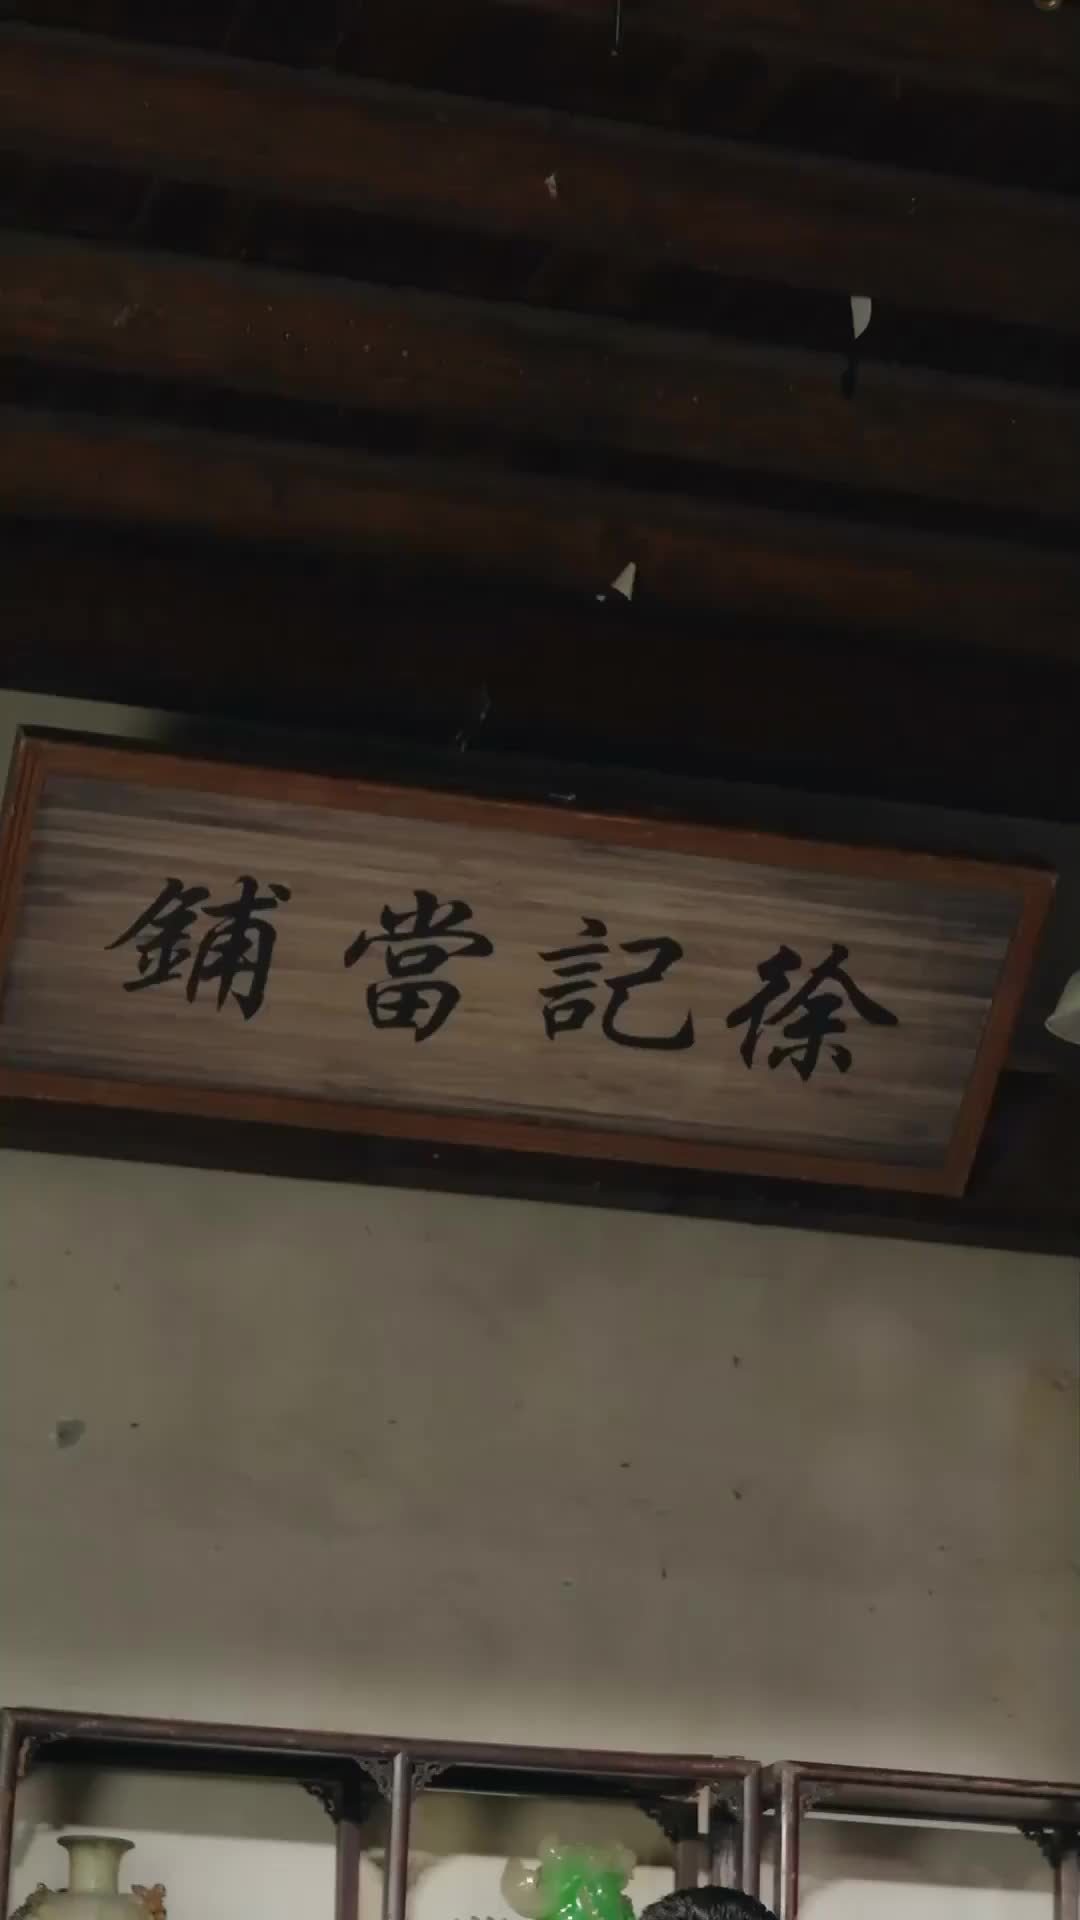 徐記當鋪